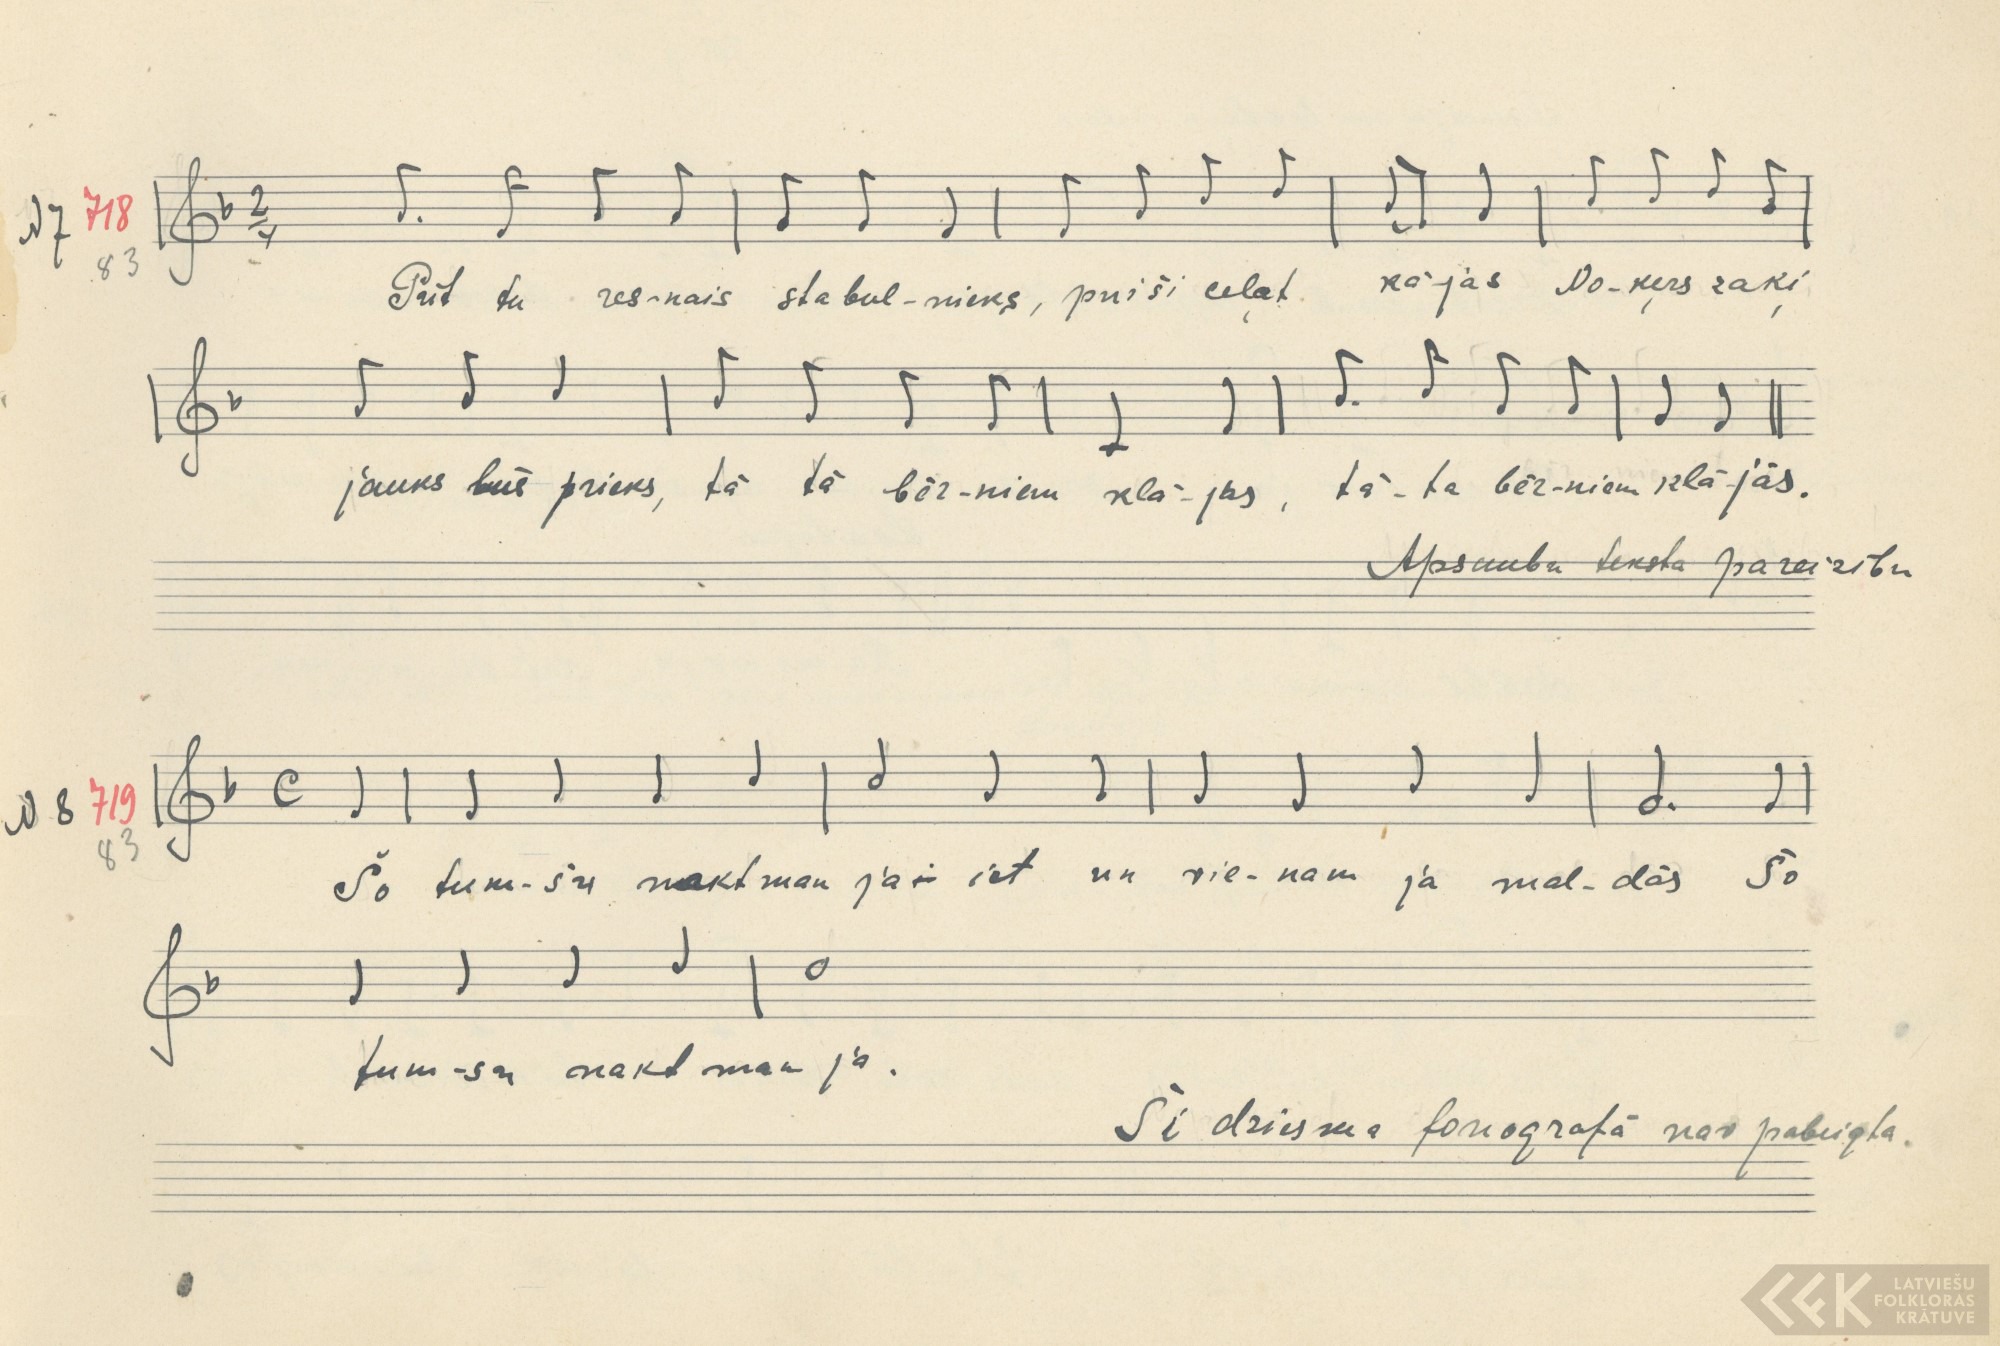 N 7 718
83
2/4
Pūt tu res-nais stabul-nieks, puiši ceļat kā-jas No-ķers zaķi
jauks būs prieks, tā tā bēr-niem klā-jas, tā-ta bēr-niem klā-jās.
Apšaubu teksta pareizību
N 8 719
83
C
Šo tum-šu nakt man jā-iet un vie-nam ja mal-dās Šo
tum-su nakt man ja.
Šī dziesma fonografā nav pabeigta.
LATVIEŠU
FOLKLORAS
KRĀTUVE